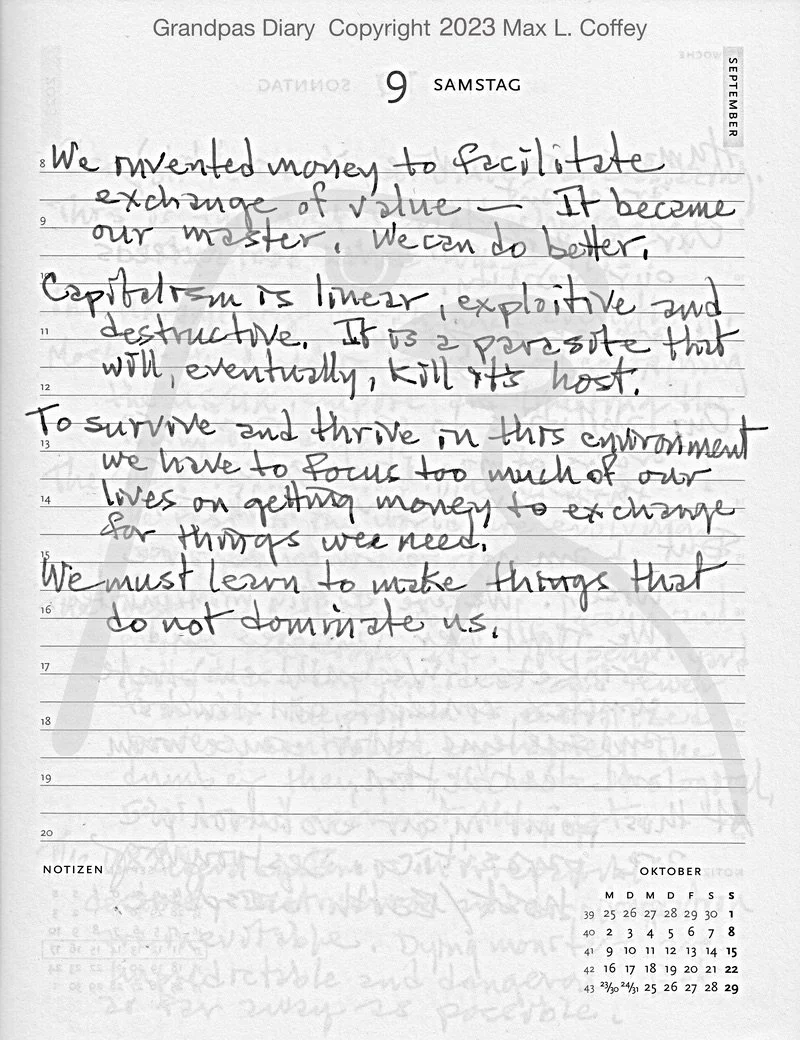 Grandpas Diary Copyright 2023 Max L. Coffey
9 SAMSTAG
SEPTEMBER
8 We invented money to facilitate
exchange of value — It became
9
our master. We can do better.
10
Capitalism is linear, exploitive and
11 destructive. It is a parasite that
will, eventually, kill it's host.
12
To survive and thrive in this environment
13
we have to focus too much of our
14 lives on getting money to exchange
for things wee need.
15
We must learn to make things that
16 do not dominate us.
17
18
19
20
NOTIZEN
OKTOBER
M D M D F S S
39 25 26 27 28 29 30 1
40 2 3 4 5 6 7 8
41 9 10 11 12 13 14 15
42 16 17 18 19 20 21 22
43 23/30 24/31 25 26 27 28 29